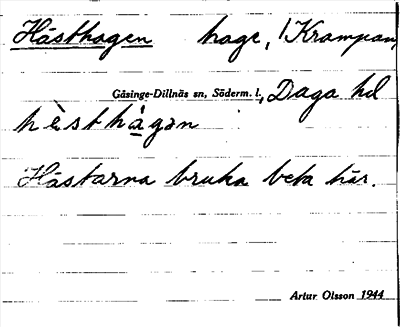 Hästhagen hage, /Krampan,
Gåsinge-Dillnäs sn, Söderm. l., Daga hd
hèsthågan
Hästarna bruka beta här.
Artur Olsson 1944